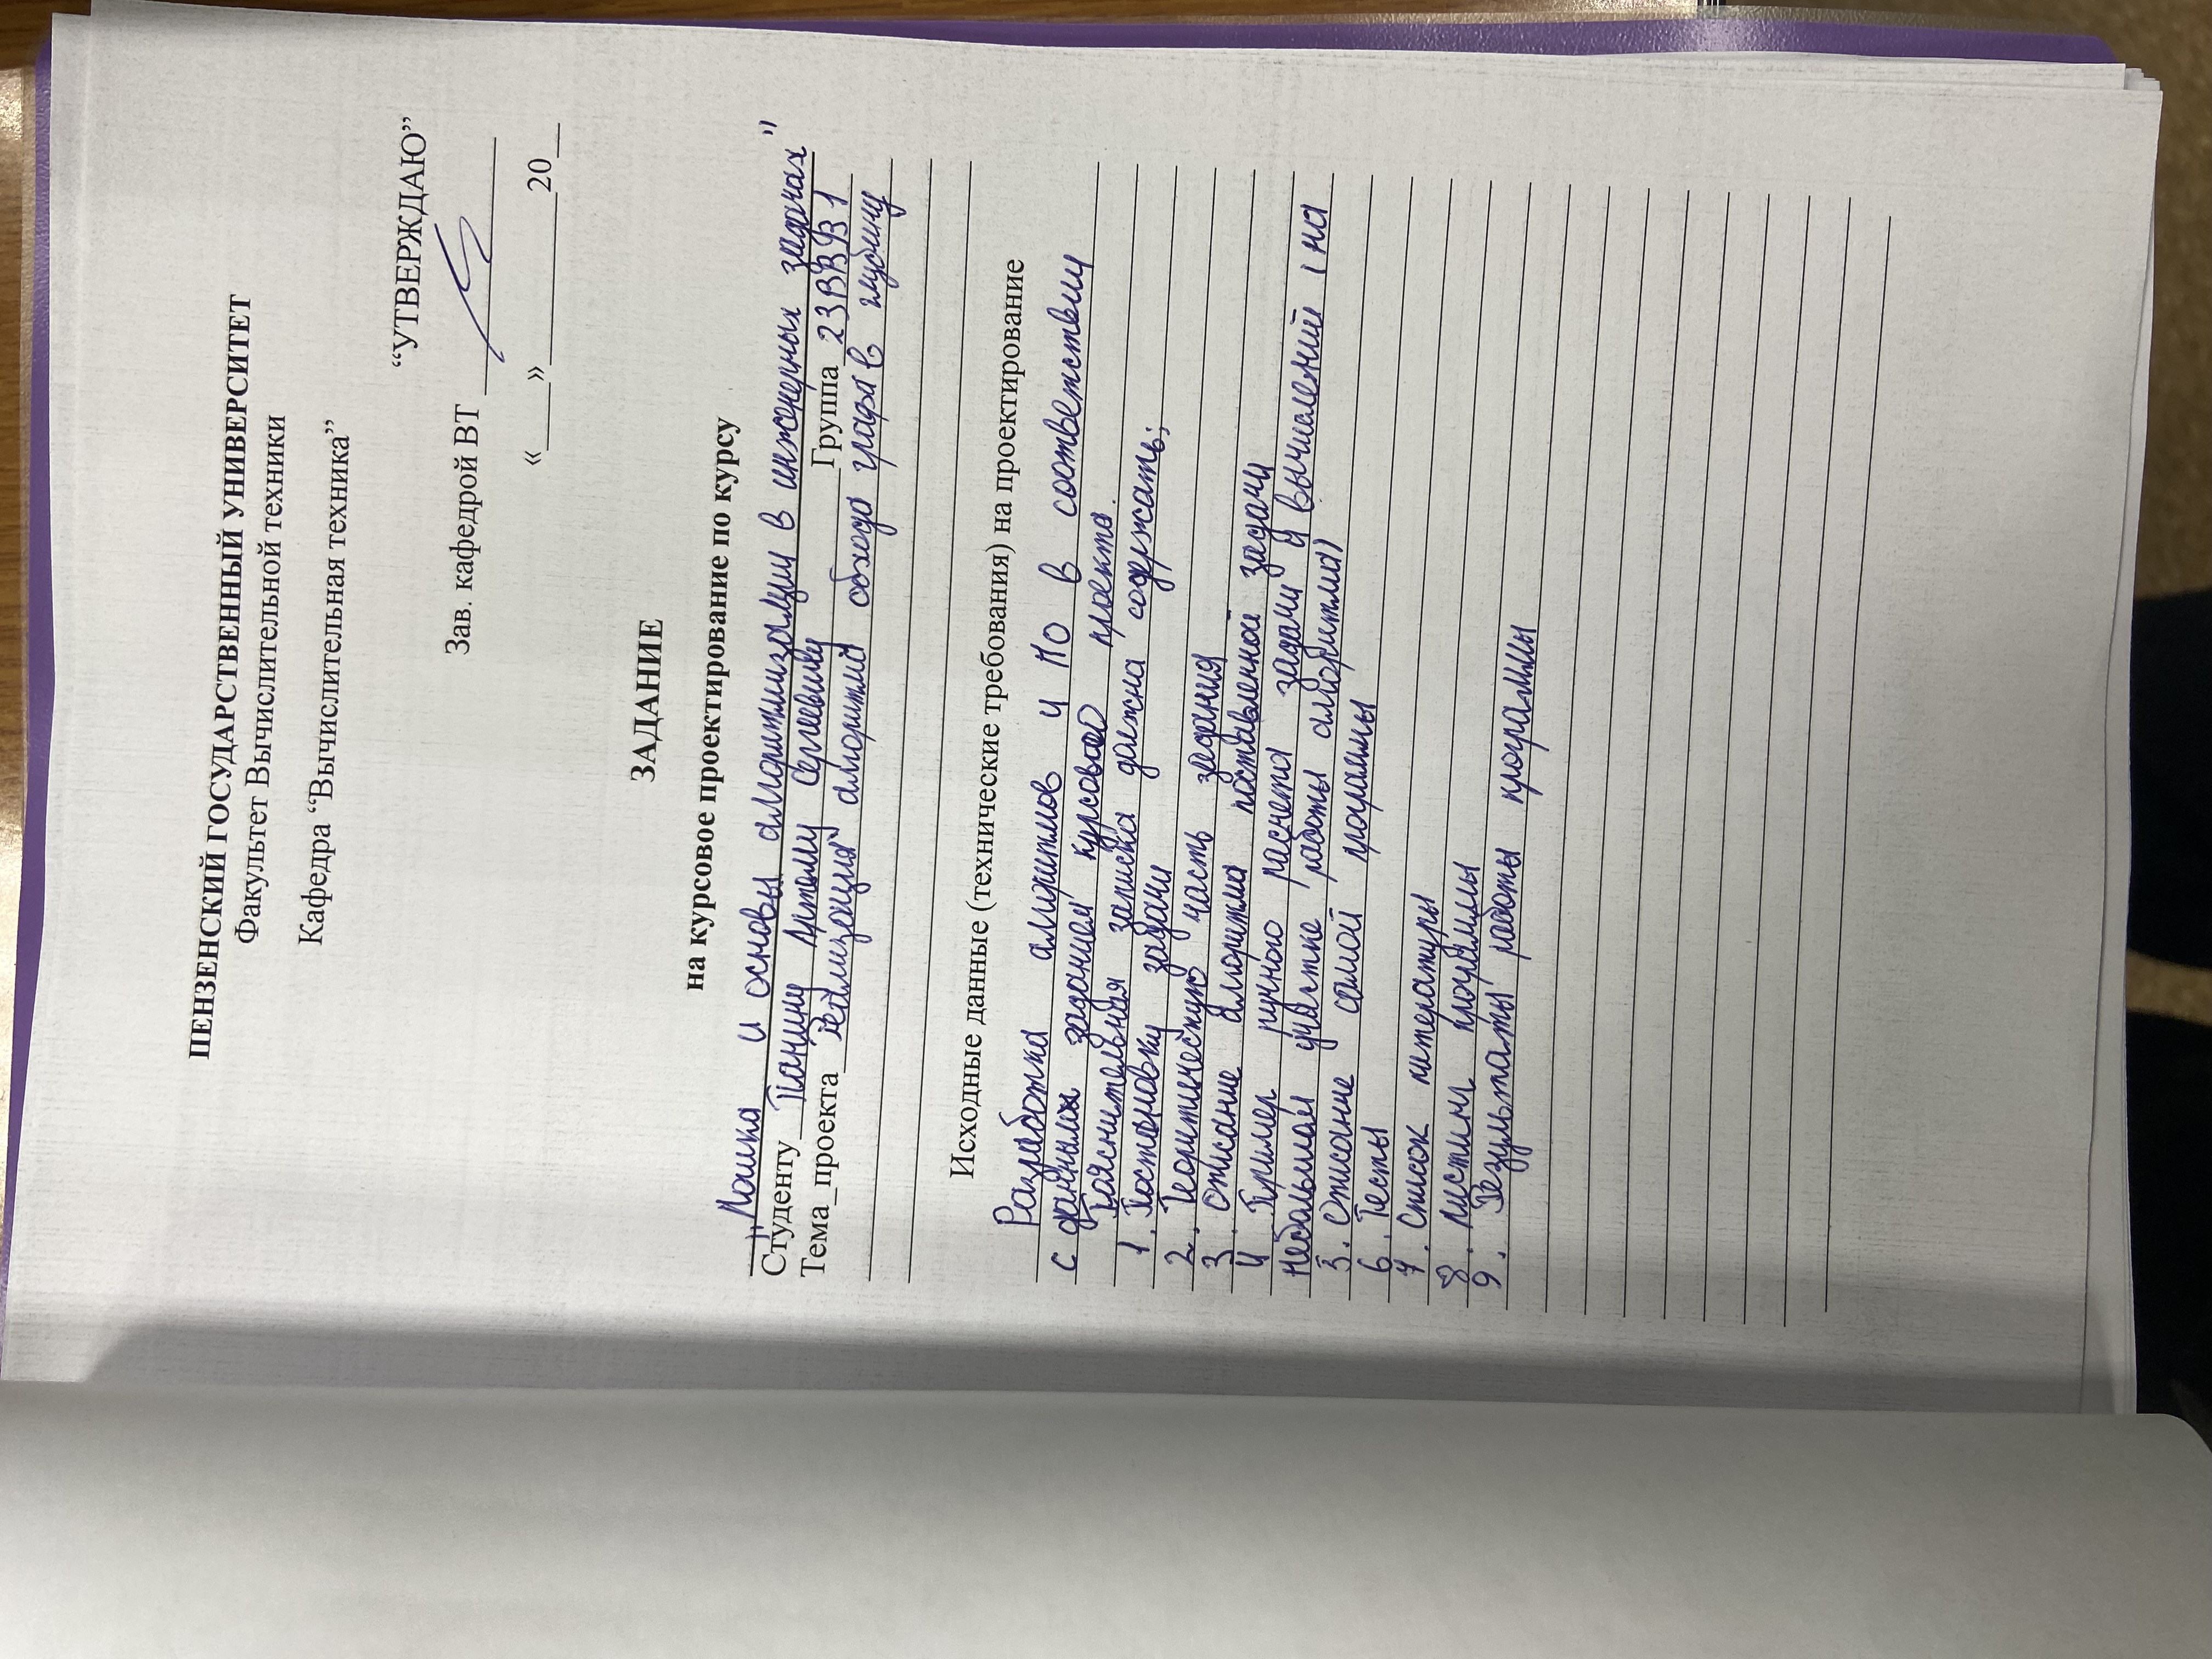 ПЕНЗЕНСКИЙ ГОСУДАРСТВЕННЫЙ УНИВЕРСИТЕТ
Факультет Вычислительной техники
Кафедра “Вычислительная техника”
“УТВЕРЖДАЮ”
Зав. кафедрой ВТ
«____»__________20__
ЗАДАНИЕ
на курсовое проектирование по курсу
„Логика и основы алгоритмизации в инженерных задачах”
Студенту Панину Артему Сергеевичу Группа 23ВВВ1
Тема_проекта Реализация алгоритма обхода графа в глубину
Исходные данные (технические требования) на проектирование
Разработка алгоритмов и ПО в соответствии
с данным заданием курсового проекта.
Пояснительная записка должна содержать:
1. Постановку задачи
2. Теоритическую часть задания
3. Описание алгоритма поставленной задачи
4 Пример ручного расчета задачи и вычислений (на
небольшом участке работы алгоритма)
5. Описание самой программы
6. Тесты
7. Список литературы
8. Листинг программы
9. Результаты работы программы